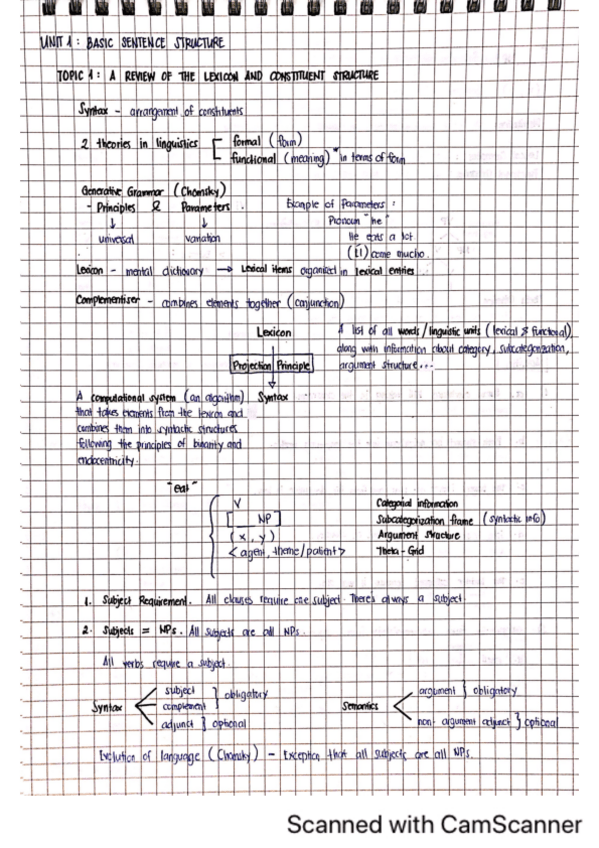 UNIT 1: BASIC SENTENCE STRUCTURE
TOPIC 1: A REVIEW OF THE LEXICON AND CONSTITUENT STRUCTURE
Syntax - arrangement of constituents
2 theories in linguistics [ formal (form)
functional (meaning) in terms of form
Generative Grammar (Chomsky)
- Principles & Parameters.
↓ ↓
universal variation
Example of Parameters:
Pronoun "he"
He eats a lot
(Él) come mucho.
Lexicon - mental dictionary → Lexical items organised in lexical entries
Complementiser - combines elements together (conjunction)
Lexicon
A list of all words/linguistic units (lexical & functional),
along with information about category, subcategorization,
argument structure...
Projection Principle
Syntax
A computational system (an algorithm)
that takes elements from the lexicon and
combines them into syntactic structures
following the principles of binarity and
endocentricity.
"eat"
V Categorial information
[__ NP] Subcategorization frame (syntactic info)
(x, y) Argument structure
<agent, theme/patient> Theta-Grid
1. Subject Requirement. All clauses require one subject. There's always a subject.
2. Subjects = NPs. All subjects are all NPs.
All verbs require a subject.
Syntax
subject
complement } obligatory
adjunct } optional
Semantics
argument } obligatory
non-argument adjunct } optional
Evolution of language (Chomsky) - Exception that all subjects are all NPs.
Scanned with CamScanner